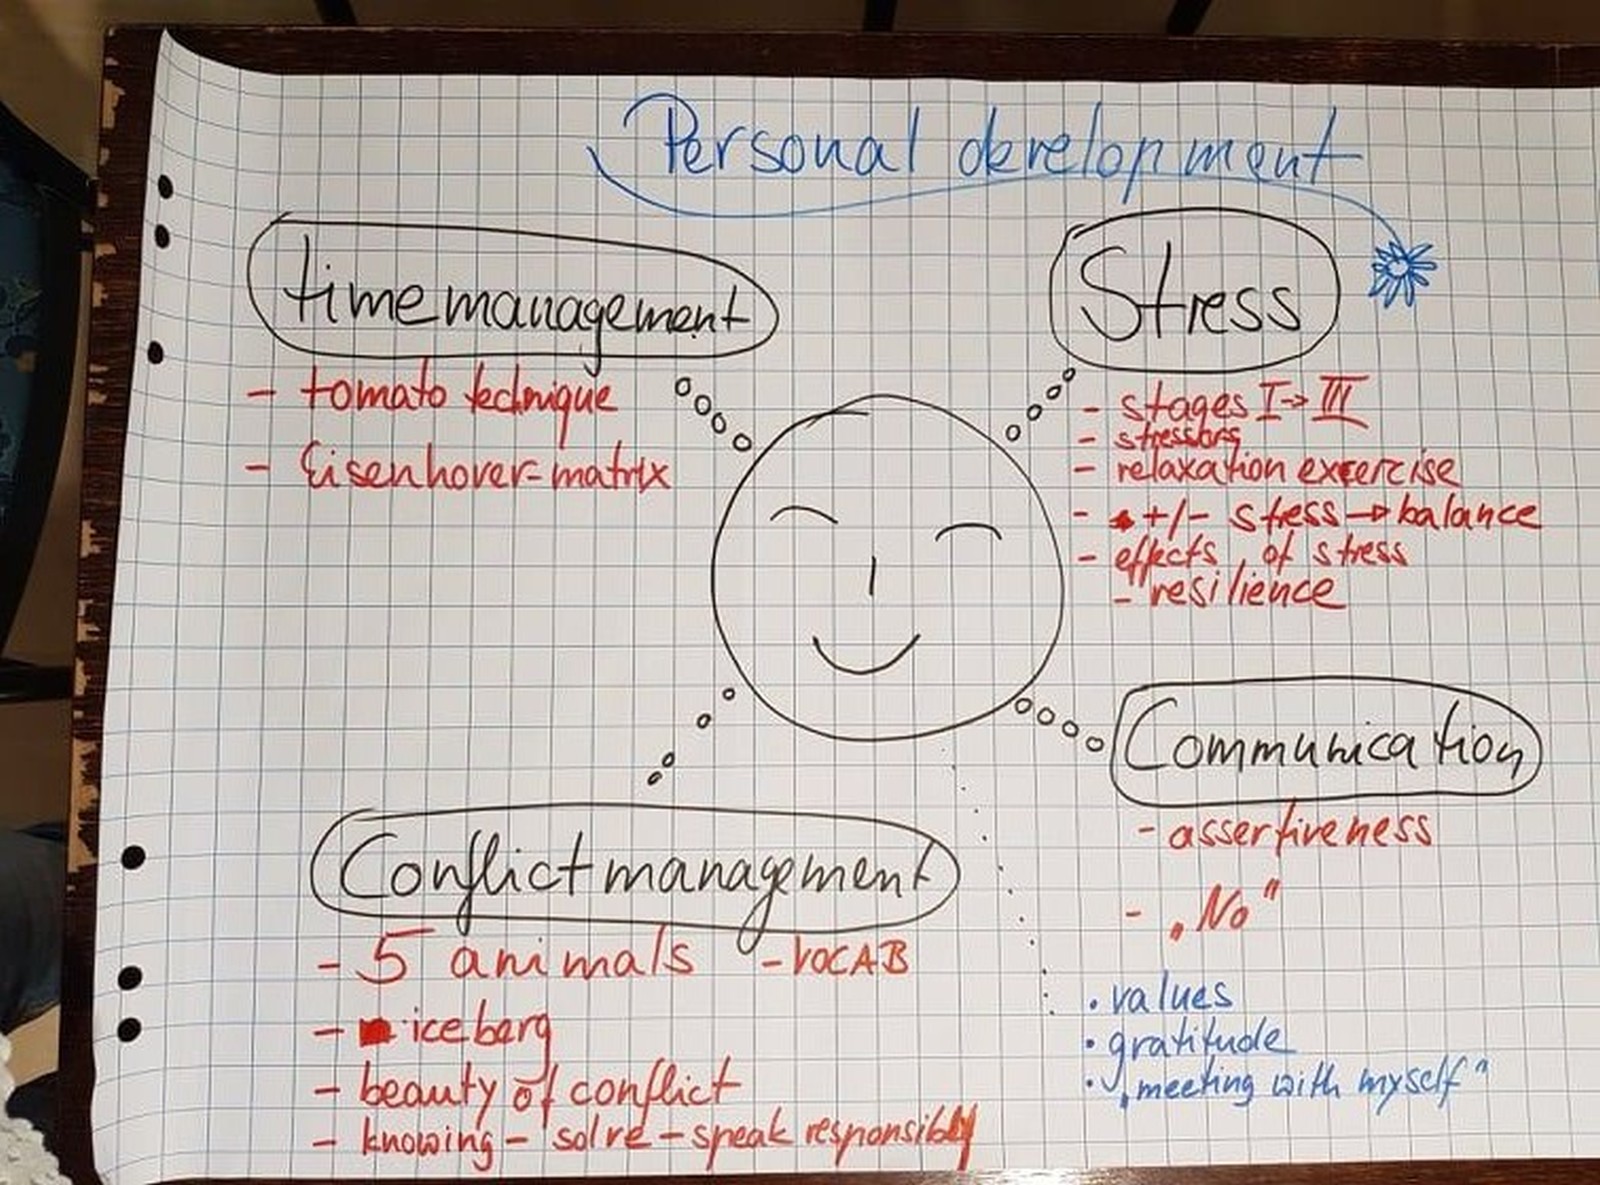 Personal development
timemanagement
- tomato technique
- Eisenhover-matrix
Stress
- stages I→III
- stressors
- relaxation excercise
- +/- stess→balance
- effects of stress
- resilience
Communication
- assertiveness
- „No"
• values
• gratitude
• „meeting with myself"
Conflictmanagement
- 5 animals - VOCAB
- iceberg
- beauty of conflict
- knowing - solve - speak responsibly